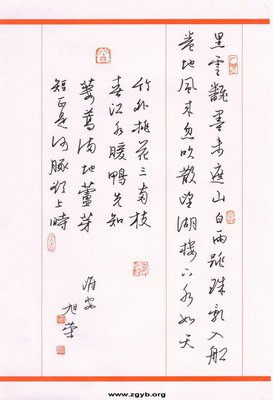 黑云翻墨未遮山白雨跳珠乱入船
卷地风来忽吹散望湖楼下水如天
竹外桃花三两枝
春江水暖鸭先知
蒌蒿满地芦芽
短正是河豚欲上时
淮安
旭荣
www.zgyb.org